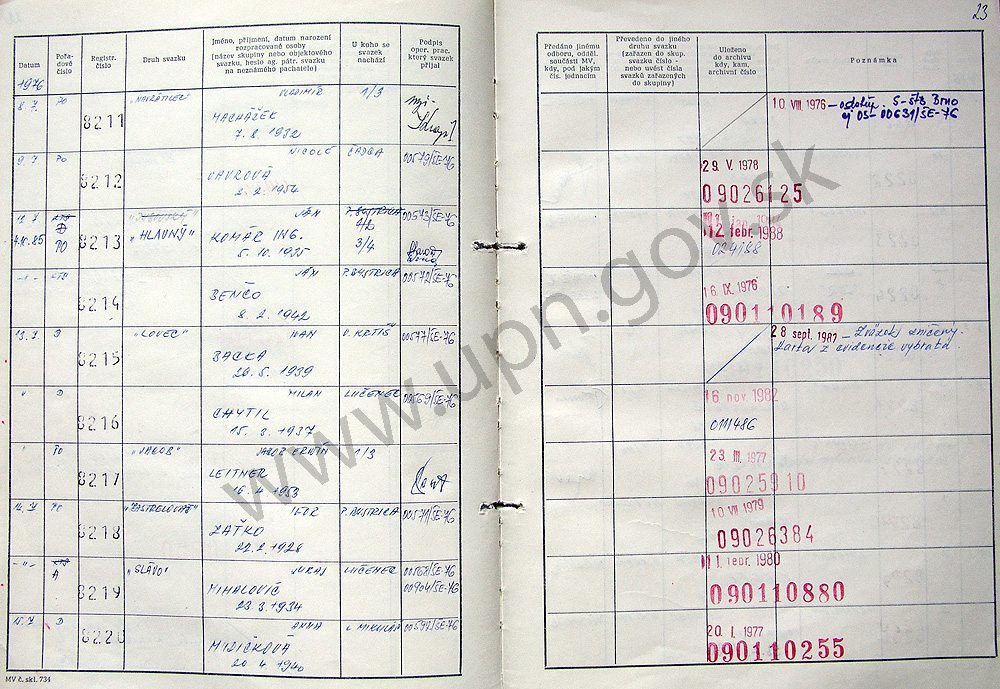 23
Datum
Pořadové číslo
Registr. číslo
Druh svazku
Jméno, příjmení, datum narození rozpracované osoby (název skupiny nebo objektového svazku, heslo ag. pátr. svazku na neznámého pachatele)
U koho se svazek nachází
Podpis oper. prac. který svazek přijal
Předáno jinému odboru, odděl. součásti MV, kdy, pod jakým čís. jednacím
Převedeno do jiného druhu svazku (zařazen do skup. svazku číslo - nebo uvést čísla svazků zařazených do skupiny)
Uloženo do archivu kdy, kam, archivní číslo
Poznámka
1976
8. 7. PO 8211 VLADIMÍR 1/3
MACHÁČEK
7. 8. 1932
10 VIII. 1976 - S-ŠtB Brno
čj OS-00631/SE-76
9. 7. PO 8212 NICOLE CADCA 00579/SE-76
VAVROVÁ
2. 2. 1954
29. V. 1978
09026125
JÁN 00573/SE-76
PO 8213 "HLAVNÝ" KOMÁR ING. 3/4
5. 10. 1935
12. febr. 1988
-"- 8214 JÁN P. BYSTRICA 00572/SE-76
BENČO
8. 2. 1942
16. IX. 1976
090110189
13. 7. D 8215 "LOVEC" IVAN V. KRTIŠ 00577/SE-76
BACKA
20. 5. 1939
28. sept. 1987 - Zväzok zničený.
Karta z evidencie vybratá
" D 8216 MILAN LUČENEC 00569/SE-76
CHYTIL
15. 3. 1937
16. nov. 1982
" PO 8217 "JAKOB" 1/3
LEITNER
16. 4. 1953
23. III. 1977
09025910
14. 7. 8218 IGOR P. BYSTRICA 00571/SE-76
ZAŤKO
22. 2. 1928
10. VII. 1979
09026384
-"- A 8219 "SLÁVO" JURAJ LUČENEC 00568/SE-76
MIHALOVIČ 00904/SE-76
23. 3. 1934
1. febr. 1980
090110880
15. 7. D 8220 ANNA L. MIKULÁŠ 00592/SE-76
MIZIČKOVÁ
20. 4. 1940
20. I. 1977
090110255
MV č. skl. 734
www.upn.gov.sk